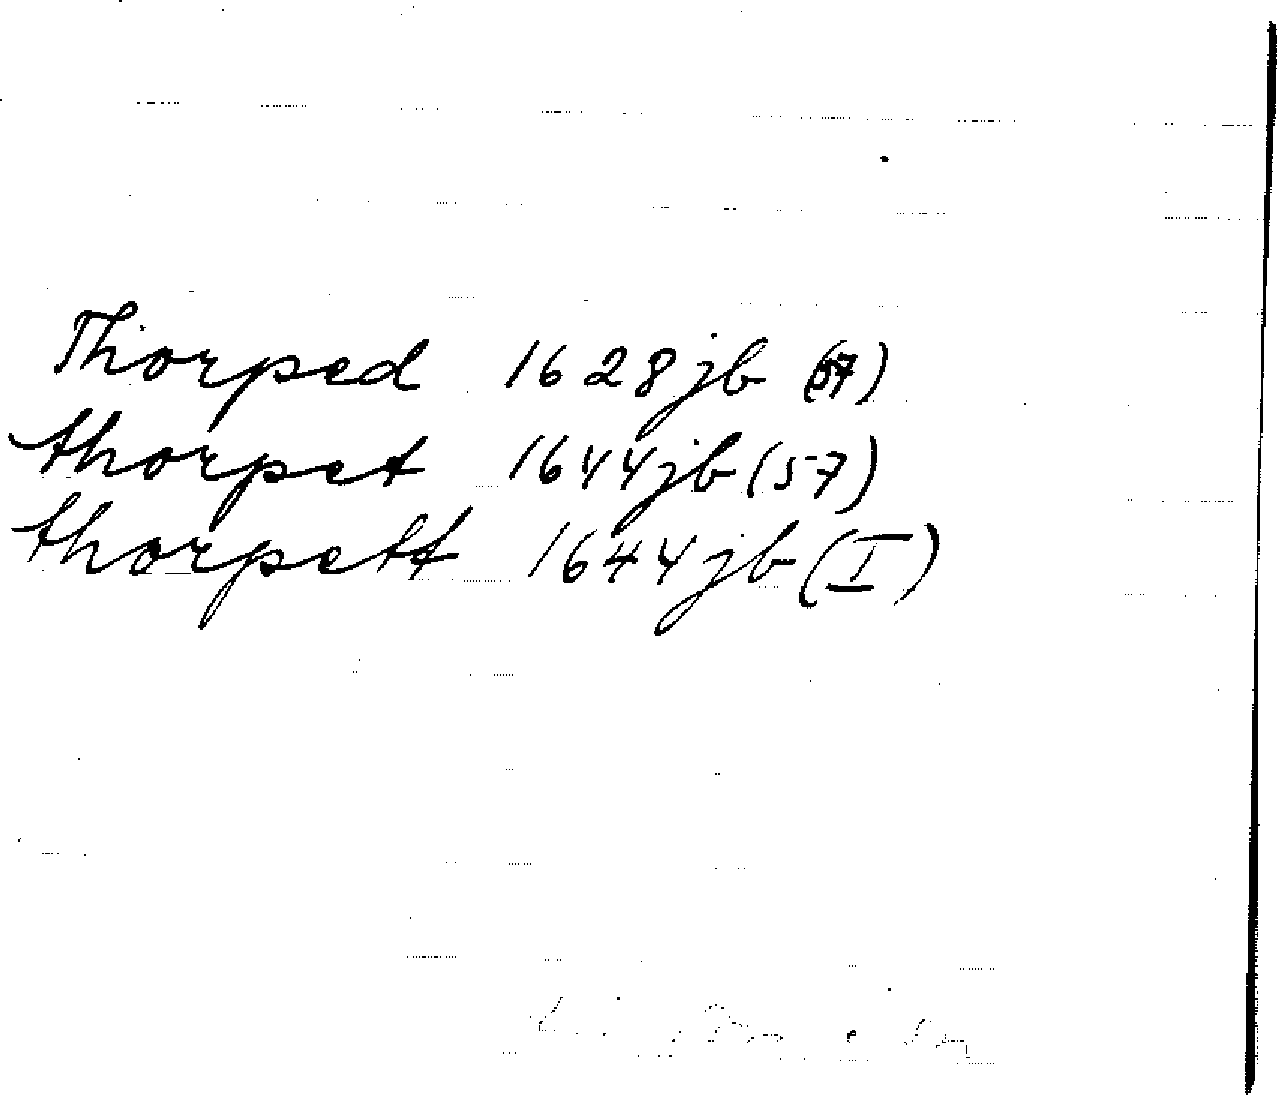 Thorped 1628 jb (57)
thorpet 1644 jb (57)
thorpett 1644 jb (I)